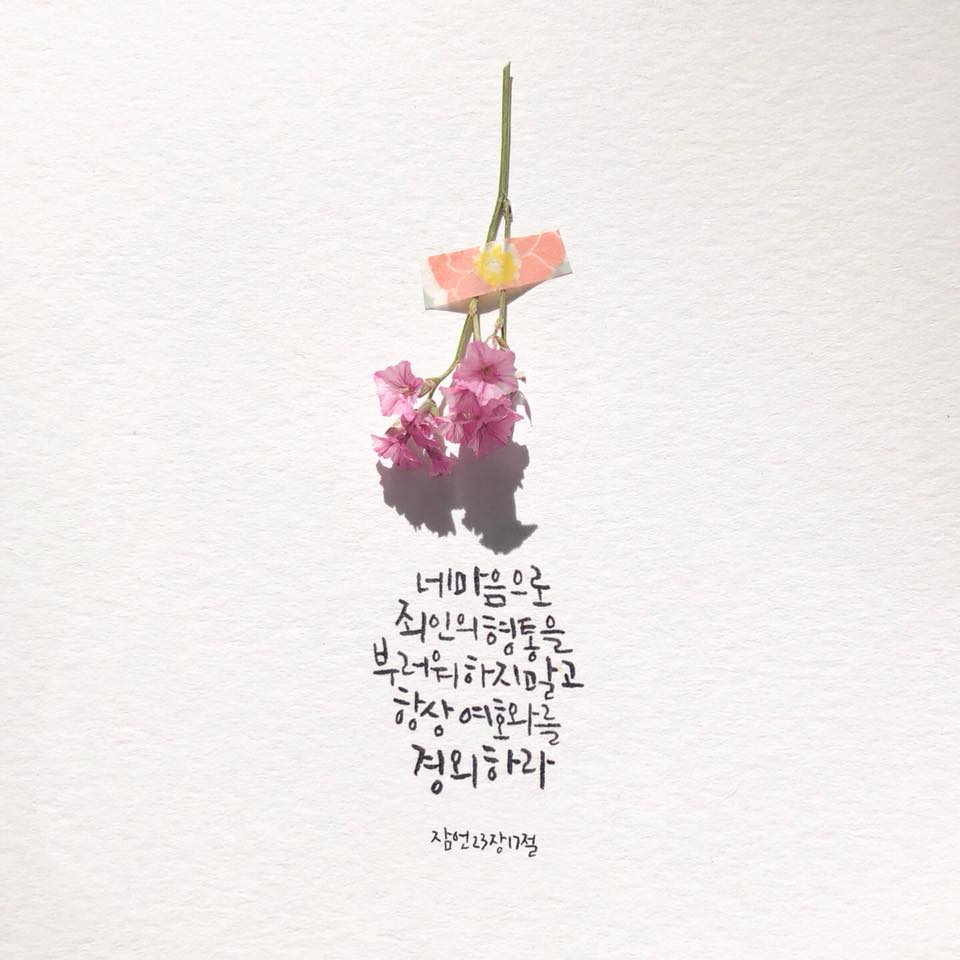 네 마음으로
죄인의 형통을
부러워하지말고
항상 여호와를
경외하라
잠언 23장 17절